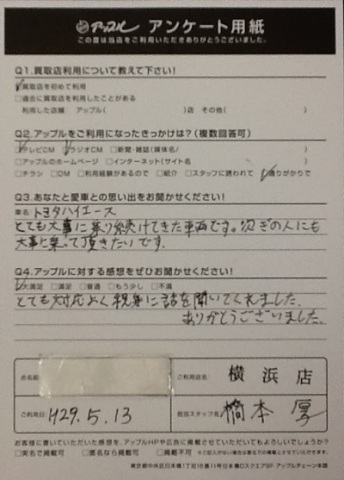 アップル アンケート用紙
この度は当店をご利用いただきありがとうございました。
Q1.買取店利用について教えて下さい!
☑買取店を初めて利用
□過去に買取店を利用したことがある
利用した店舗 アップル( )店 その他( )
Q2.アップルをご利用になったきっかけは?(複数回答可)
☑テレビCM ☑ラジオCM □新聞・雑誌(媒体名/ )
□アップルのホームページ □インターネット(サイト名 )
□チラシ □DM □利用経験があるので □紹介 □スタッフに誘われて ☑通りがかりで
Q3.あなたと愛車との思い出をお聞かせください!
車名 トヨタハイエース
とても大事に乗り続けてきた車両です。次ぎの人にも
大事に乗って頂きたいです。
Q4.アップルに対する感想をぜひお聞かせください!
☑大満足 □満足 □普通 □もう少し □不満
とても対応よく親身に話を聞いてくれました。
ありがとうございました。
お名前
ご利用店名 横浜店
ご利用日 H29.5.13
担当スタッフ名 橋本 厚
お客様に書いていただいた感想を、アップルHPや広告に掲載させていただいてもよろしいでしょうか?
□実名で掲載可 □匿名なら掲載可 □掲載不可
東京都中央区日本橋1丁目18番11号日本橋DスクエアSF アップルチェーン本部